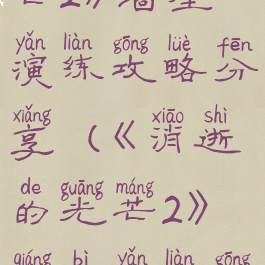 2》墙壁
yǎn liàn gōng lüè fēn
演练攻略分
xiǎng xiāo shì
享（《消逝
de guāng máng
的光芒2》
qiáng bì yǎn liàn gōng